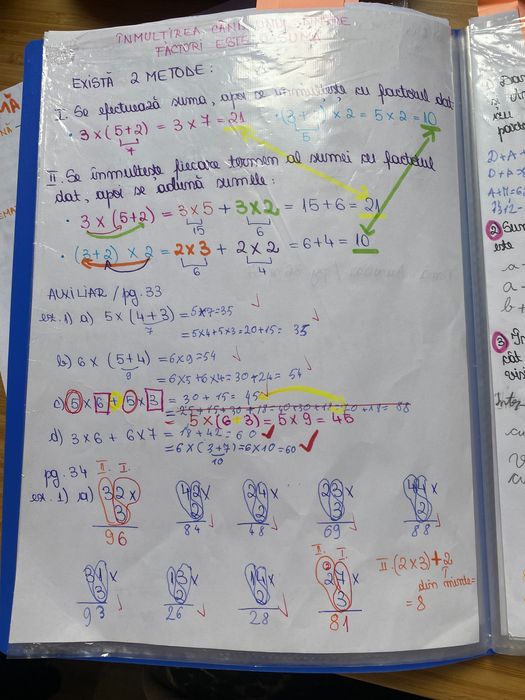 ÎNMULȚIREA CÂND UNUL DINTRE
FACTORI ESTE O SUMĂ
EXISTĂ 2 METODE:
I. Se efectuează suma, apoi se înmulțește cu factorul dat:
• 3 × (5+2) = 3 × 7 = 21
7
• (3+2) × 2 = 5 × 2 = 10
5
II. Se înmulțește fiecare termen al sumei cu factorul
dat, apoi se adună sumele:
• 3 × (5+2) = 3 × 5 + 3 × 2 = 15 + 6 = 21
15 6
• (3+2) × 2 = 2 × 3 + 2 × 2 = 6 + 4 = 10
6 4
AUXILIAR / pg. 33
ex. 1) a) 5 × (4+3) = 5×7 = 35
7
= 5×4 + 5×3 = 20+15 = 35
b) 6 × (5+4) = 6×9 = 54
9
= 6×5 + 6×4 = 30+24 = 54
c) 5 × 6 + 5 × 3 = 30 + 15 = 45
= 5 × (6+3) = 5 × 9 = 45
d) 3 × 6 + 6 × 7 = 18 + 42 = 60
= 6 × (3+7) = 6 × 10 = 60
10
pg. 34
ex. 1) a)
II. I.
32× 42× 24× 23× 44×
3 2 2 3 2
96 84 48 69 88
II. I.
31× 13× 14× 27× II. (2×3)+2
3 2 2 3 din minte =
93 26 28 81 = 8
2
3